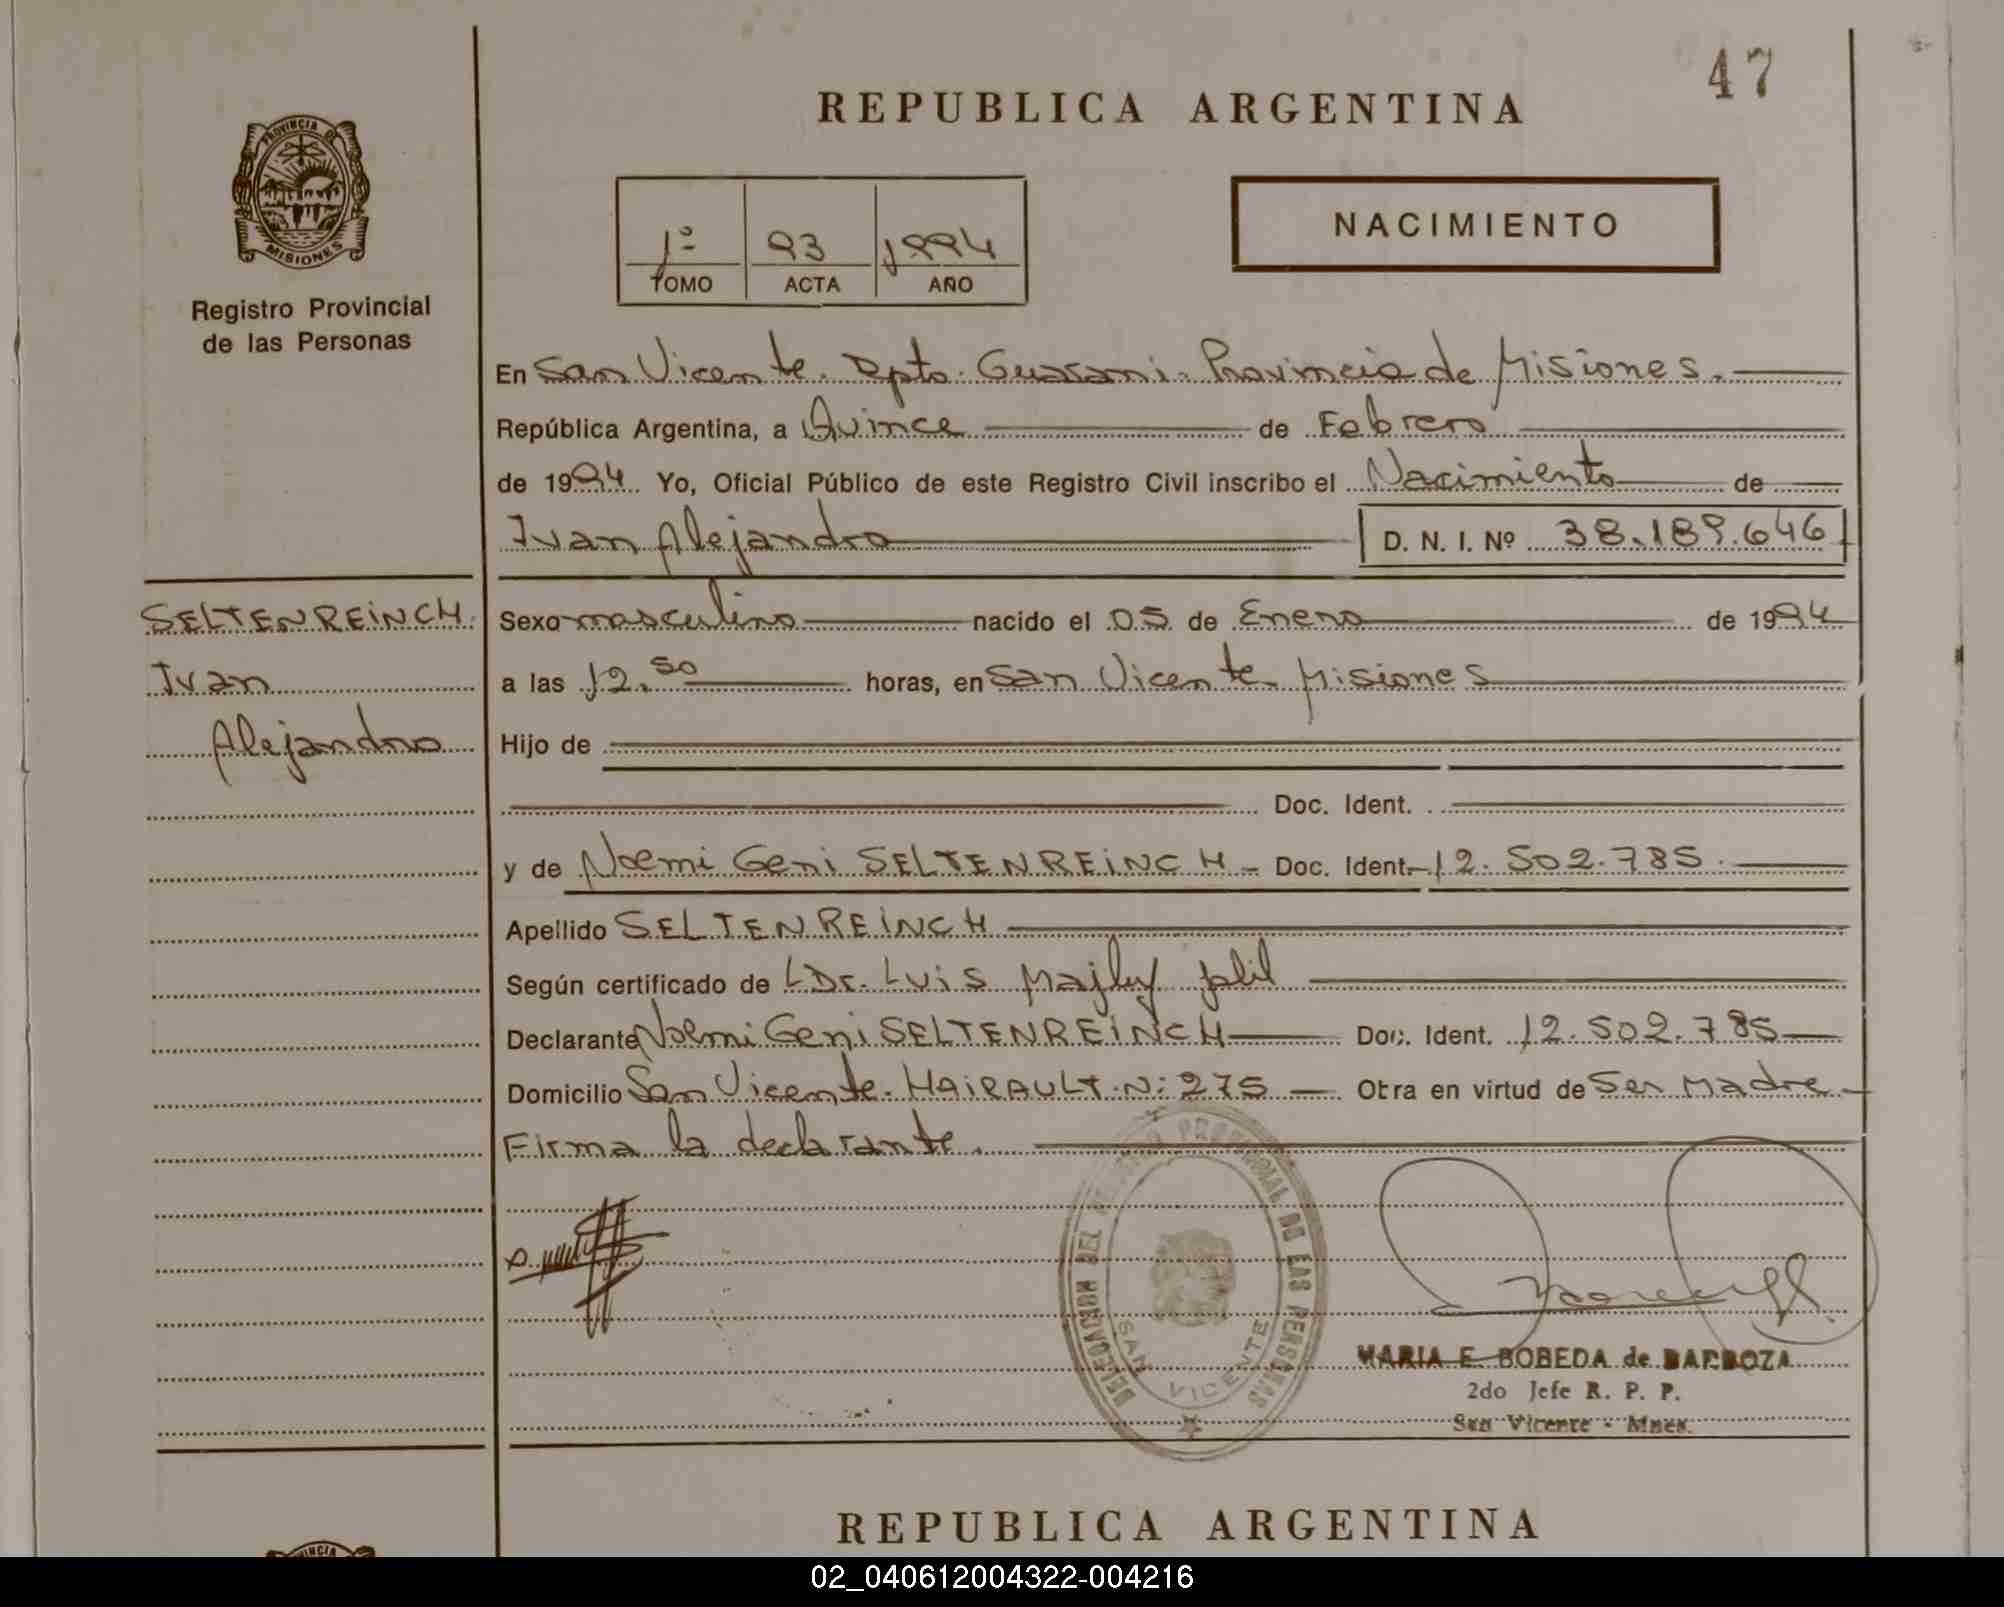 47
REPUBLICA ARGENTINA
PROVINCIA DE
MISIONES
Registro Provincial
de las Personas
NACIMIENTO
1º 93 1994
TOMO ACTA AÑO
En San Vicente. Dpto. Guarani. Provincia de Misiones.
República Argentina, a Quince de Febrero
de 1994. Yo, Oficial Público de este Registro Civil inscribo el Nacimiento de
Ivan Alejandro D. N. I. Nº 38.189.646
SELTENREINCH
Ivan
Alejandro
Sexo masculino nacido el 05 de Enero de 1994
a las 12.50 horas, en San Vicente. Misiones
Hijo de
Doc. Ident.
y de Noemi Geni SELTENREINCH - Doc. Ident. 12.502.785.
Apellido SELTENREINCH
Según certificado de Dr. Luis
Declarante Noemi Geni SELTENREINCH Doc. Ident. 12.502.785
Domicilio San Vicente. HAIRAULT. N: 275 Otra en virtud de Ser Madre
Firma la declarante.
DELEGACION DEL REGISTRO PROVINCIAL DE LAS PERSONAS
SAN VICENTE
MARIA E. BOBEDA de BARBOZA
2do Jefe R. P. P.
San Vicente - Mnes.
REPUBLICA ARGENTINA
02_040612004322-004216